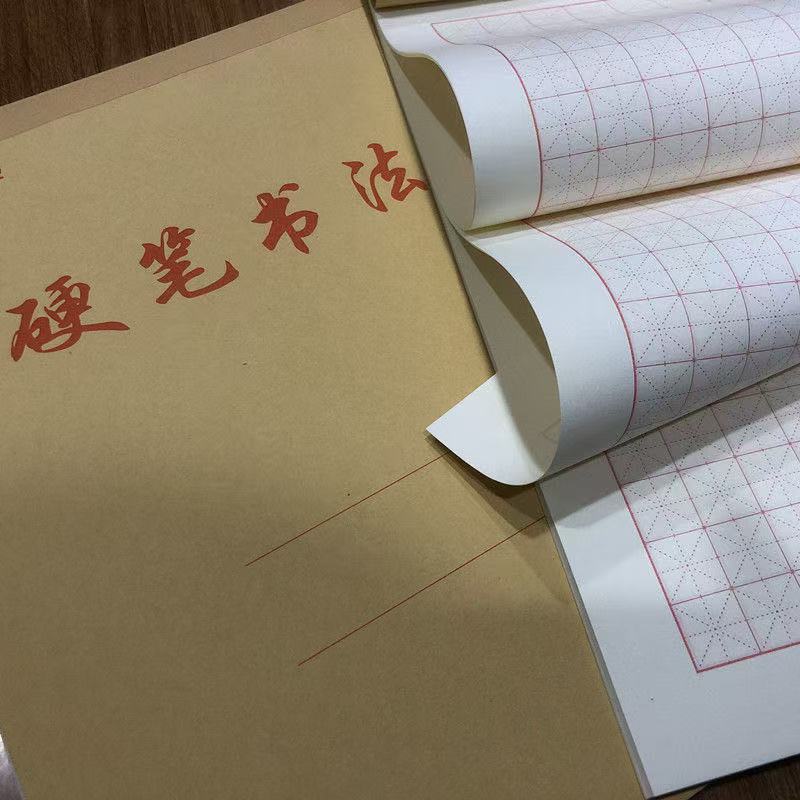 硬笔书法